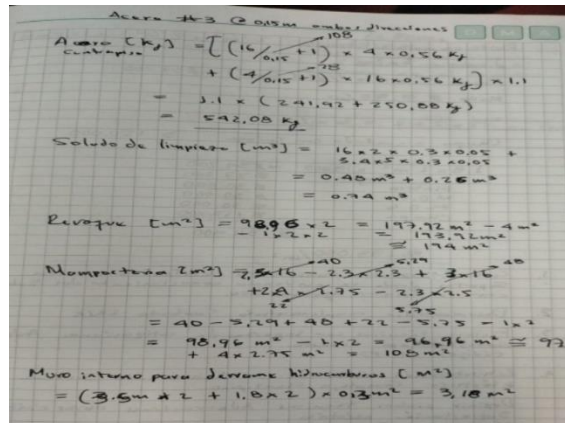 Acero #3 @ 0.15m ambas direcciones
108
Acero [Kg] = [(16/0.15 + 1) x 4 x 0.56 Kg
contrapiso
28
+ (4/0.15 + 1) x 16 x 0.56 Kg] x 1.1
= 1.1 x (241,92 + 250,88 Kg)
= 542,08 Kg
Solado de limpieza [m³] = 16 x 2 x 0.3 x 0,05 +
3.4 x 5 x 0.3 x 0,05
= 0.48 m³ + 0.26 m³
= 0.74 m³
Revoque [m²] = 98,96 x 2 = 197,92 m² - 4 m²
- 1 x 2 x 2 = 193,92 m²
≅ 194 m²
40 5,29 48
Mampostería [m²] = 2,5 x 16 - 2.3 x 2.3 + 3 x 16
+ 2 x 4 x 2.75 - 2.3 x 2.5
22 5,75
= 40 - 5,29 + 48 + 22 - 5,75 - 1 x 2
= 98,96 m² - 1 x 2 = 96,96 m² ≅ 97
+ 4 x 2.75 m² = 108 m²
Muro interno para derrame hidrocarburos [m²]
= (3.5m x 2 + 1.8 x 2) x 0,3 m² = 3,18 m²